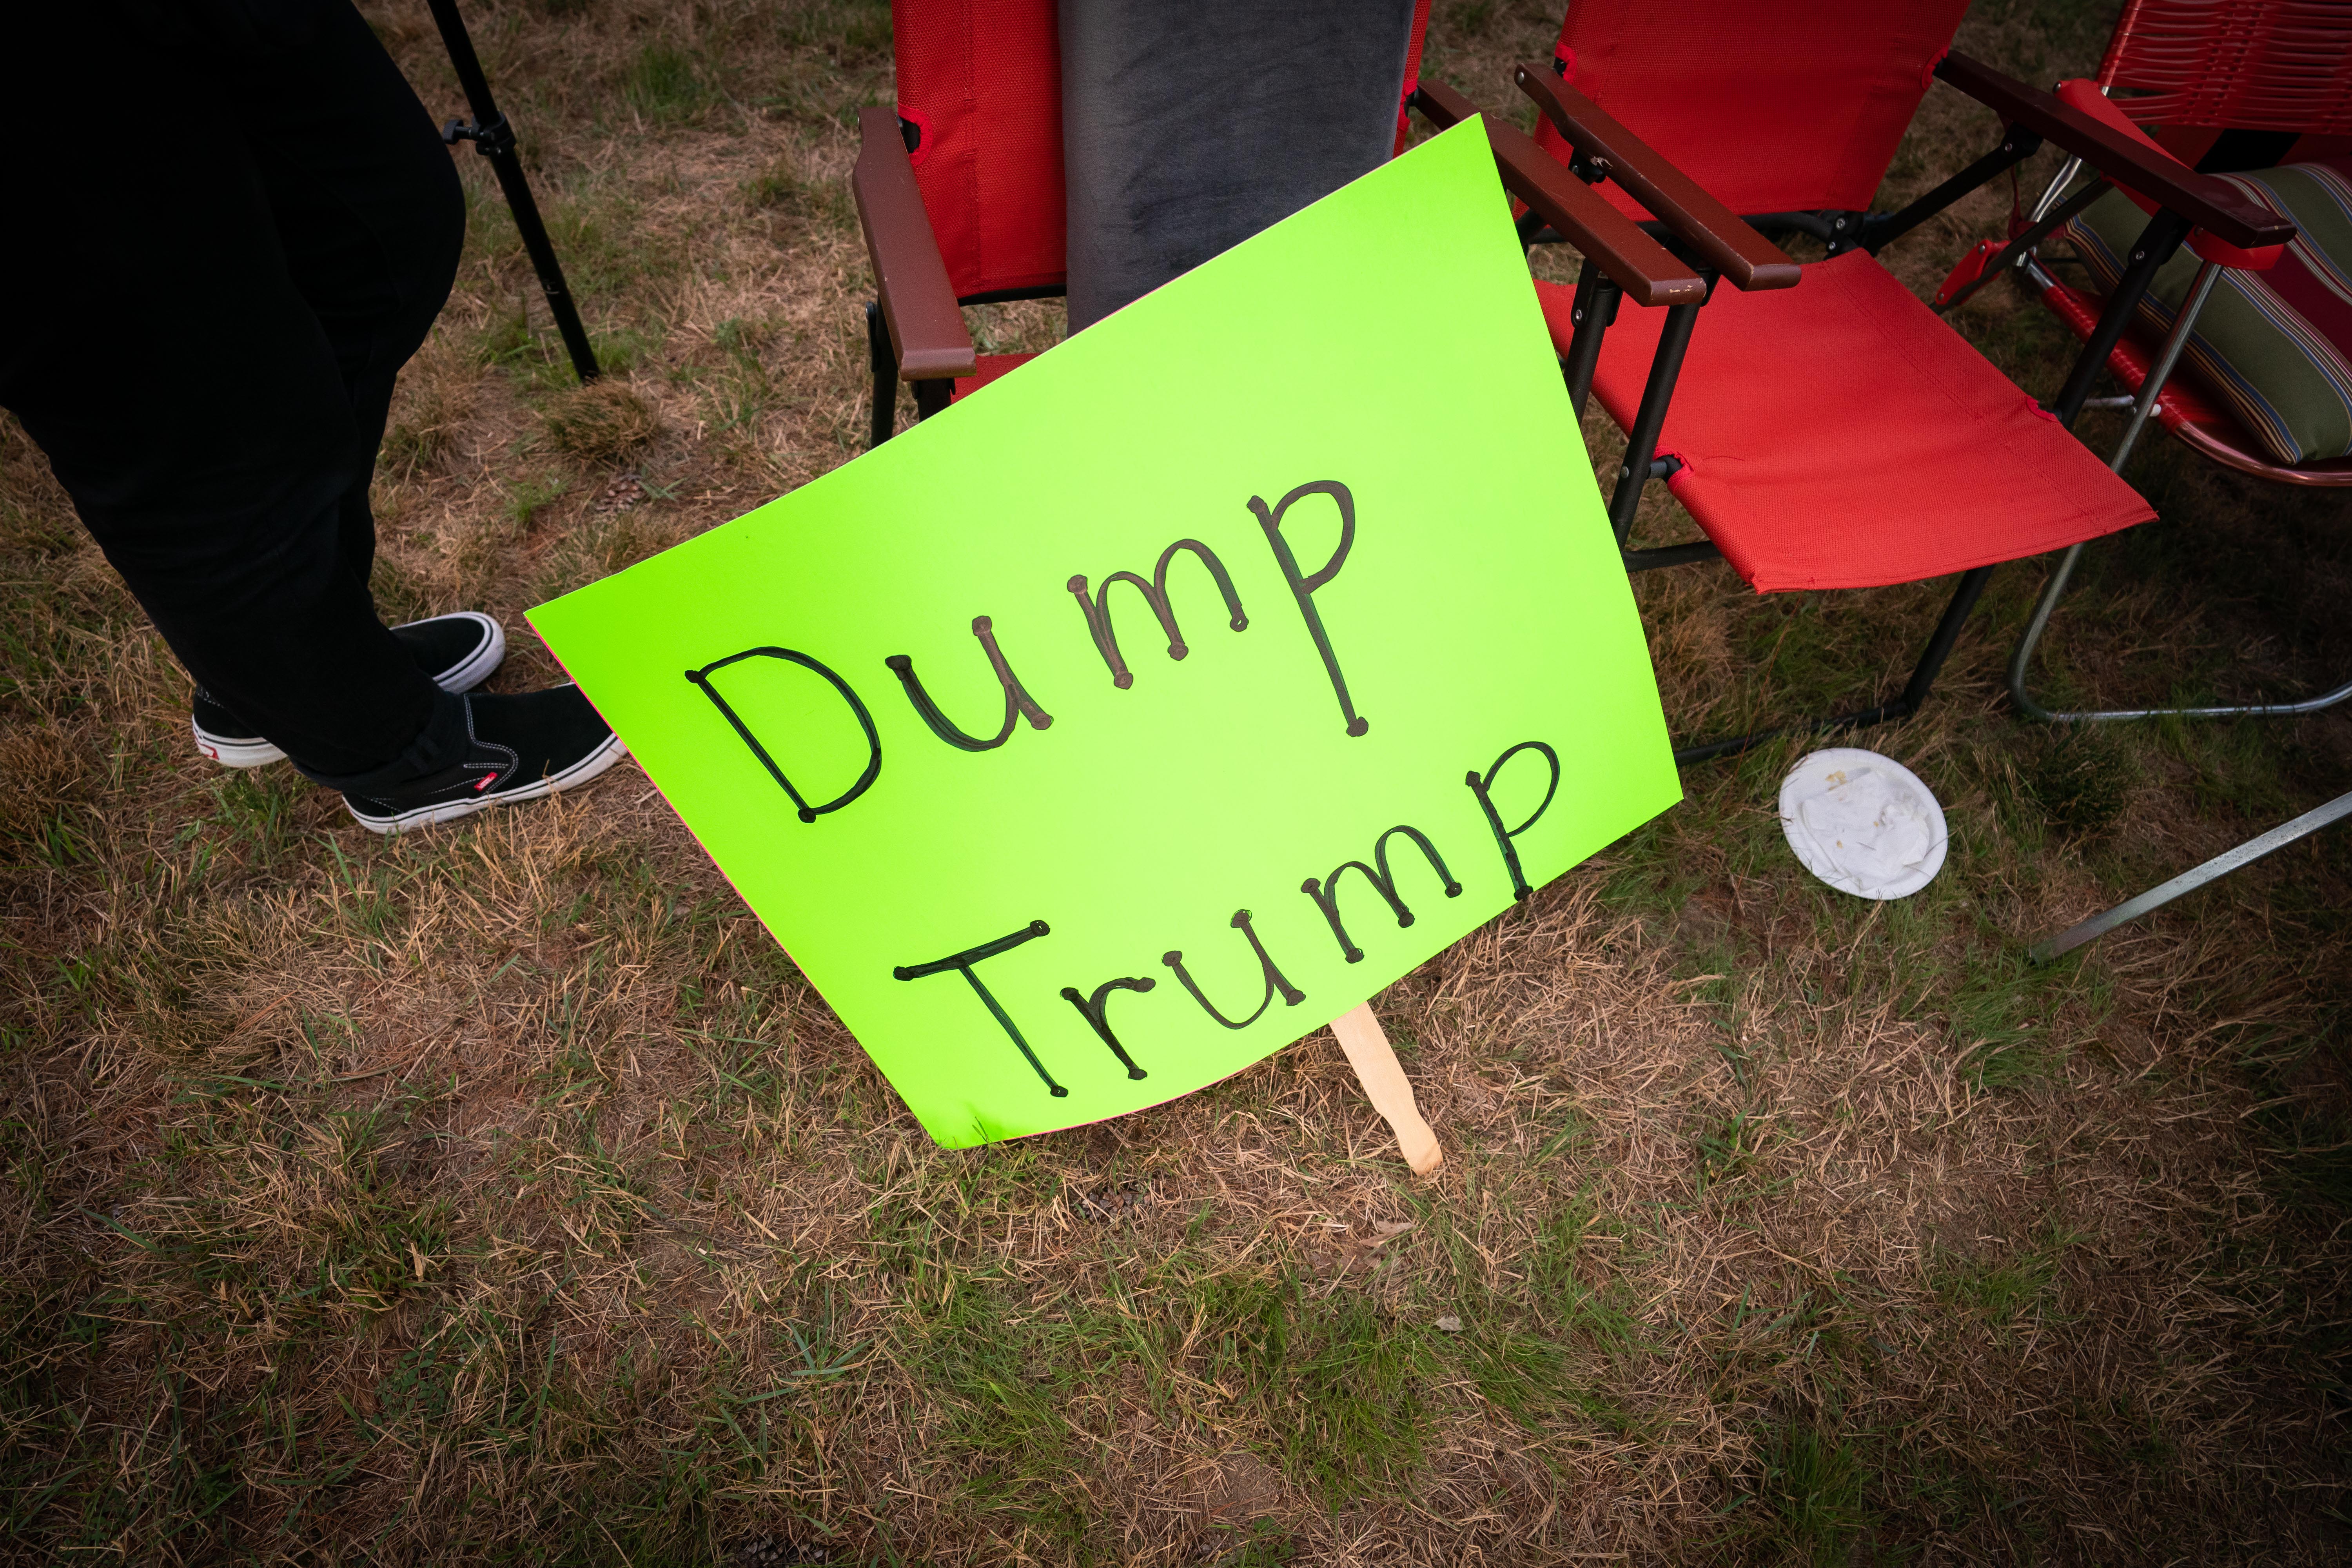 Dump
Trump